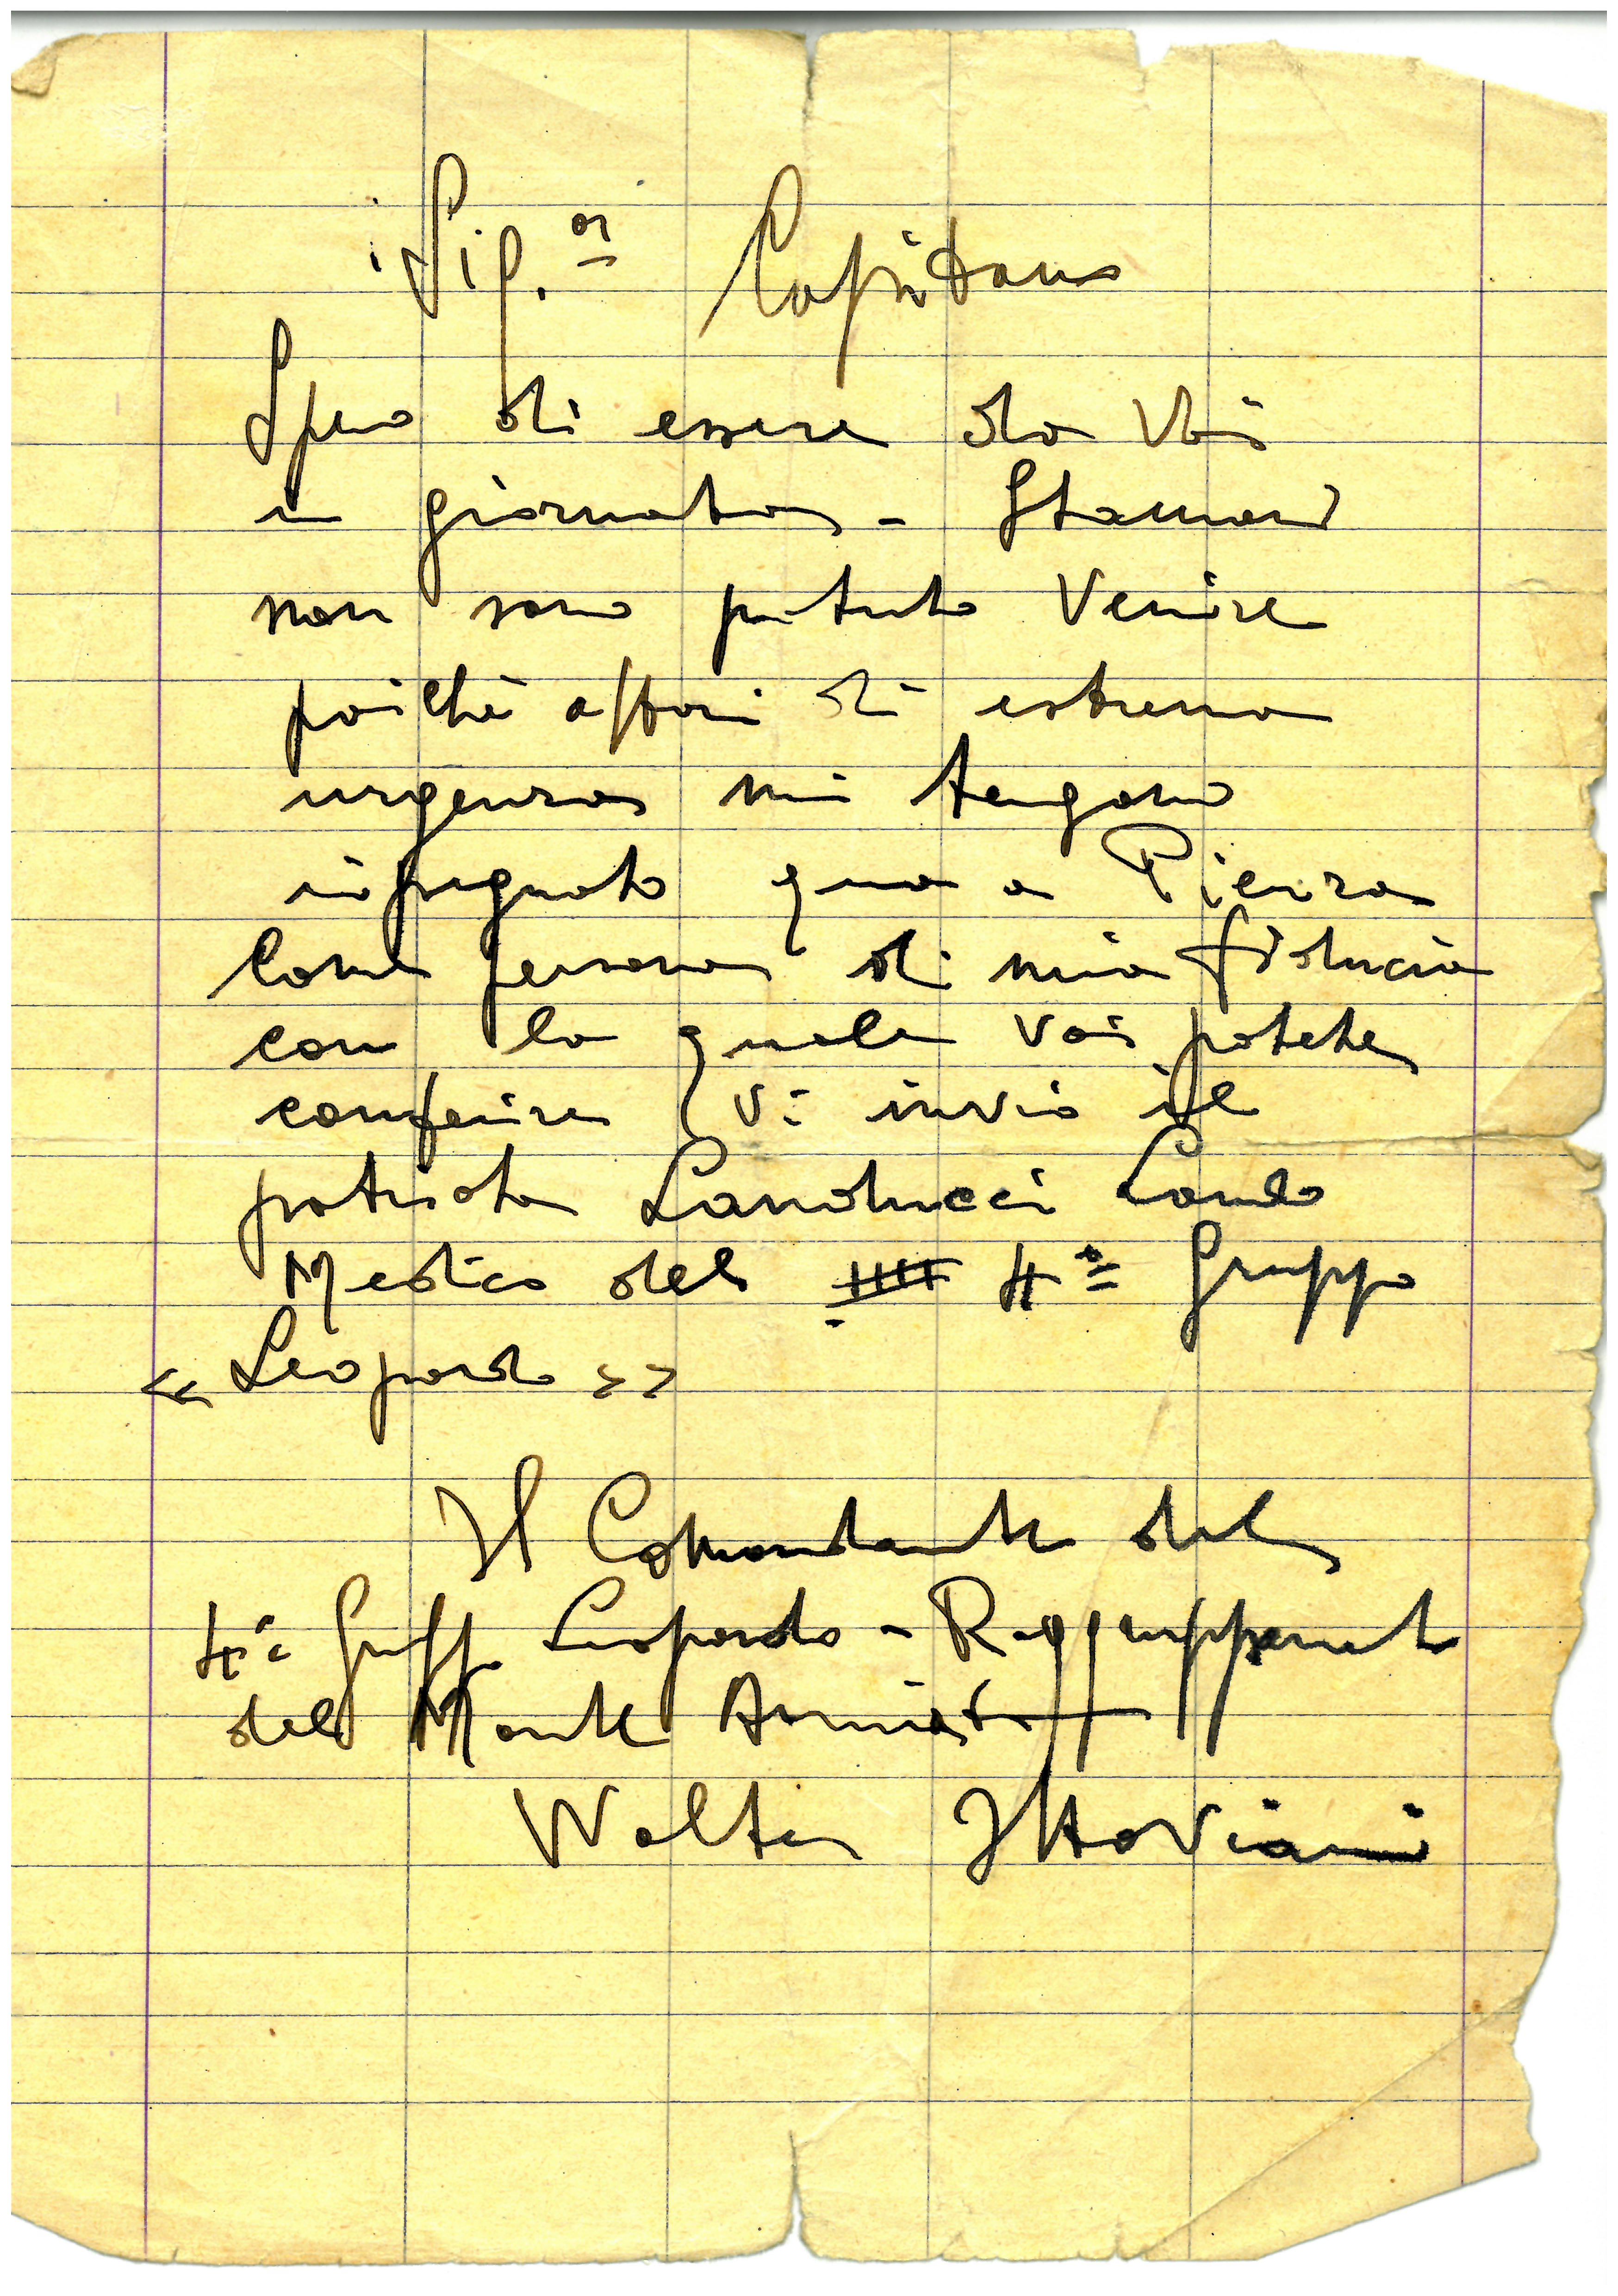 Sig.or Capitano
Spero di essere da Voi
in giornata - Stamani
non sono potuto venire
poichè affari di estrema
urgenza mi tengono
impegnato qua a Pienza
Come persona di mia fiducia
con la quale voi potete
conferire vi invio il
patriota Landucci Lando
Medico del 4° Gruppo
« Leopardo »
Il Comandante del
4° Gruppo Leopardo - Raggruppamento
del Monte Amiata
Walter Ottaviani